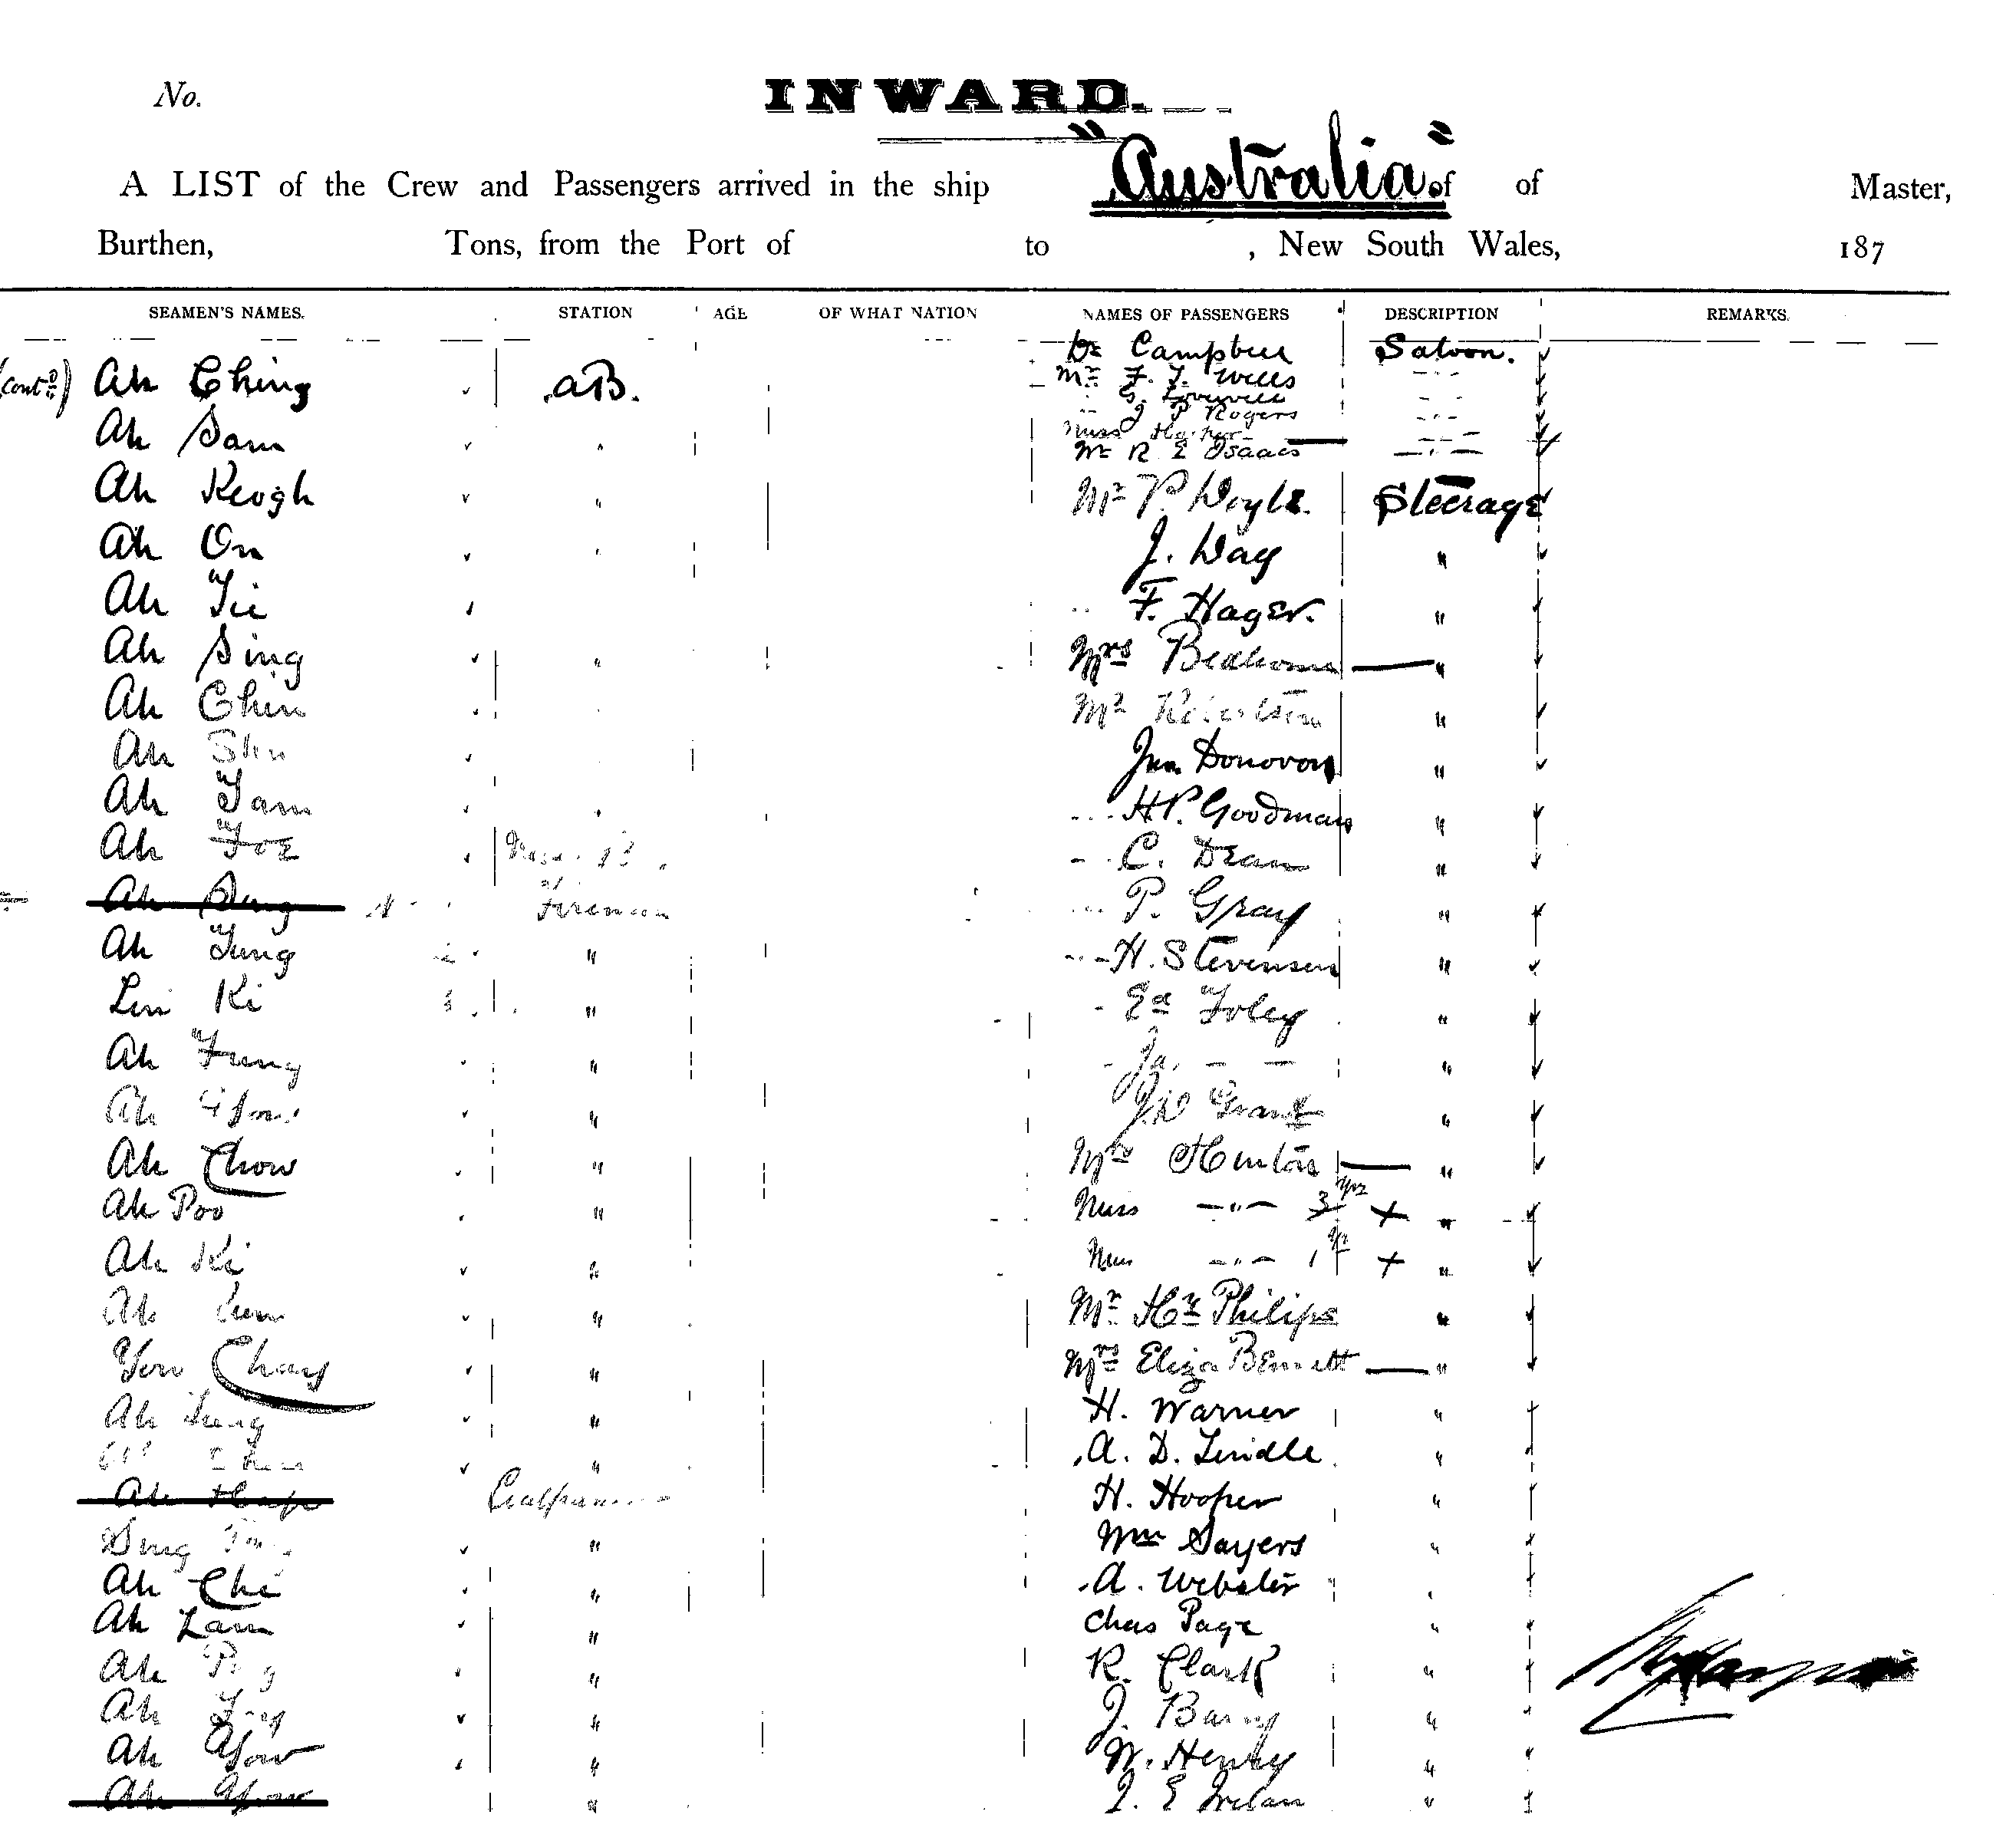 No.
INWARD.
A LIST of the Crew and Passengers arrived in the ship "Australia" of of Master,
Burthen, Tons, from the Port of to , New South Wales, 187
SEAMEN'S NAMES. STATION AGE OF WHAT NATION NAMES OF PASSENGERS DESCRIPTION REMARKS.
Dr Campbell Saloon.
(Contd) Ah Ching AB. Mr F. J. Wills
J P Rogers
Ah Sam Miss
Mr R E Isaacs
Ah Keogh " Mr P. Doyle. Steerage
Ah On " J. Day "
Ah Tie F. Hager. "
Ah Sing " Mrs "
Ah Chin Mr Robertson "
Ah Jno. Donovon "
Ah Tam " H.P. Goodman "
Ah Foe C. Dean "
Ah Fireman P. Gray "
Ah Tung " H. Stevensen "
Lin Ki " Ed Foley "
Ah Fung " Ja. — — "
Ah " Grant "
Ah Chow " Mrs Hinton "
Ah Poo " Miss —"— 3 yrs + "
Ah Ki " Miss —"— 1 yr + "
Ah " Mr Hy Philips "
You Chong " Mrs Eliza Bennett "
Ah Tung " H. Warner "
" A. D. Lindle "
Ah Hap Coalpasser H. Hooper "
" Wm Sayers "
Ah Chi " A. Webster "
Ah Lam " Chas Page "
Ah " R. Clark "
Ah " J. Barry "
Ah Gow " W. Henry "
Ah " J. E Irelan "